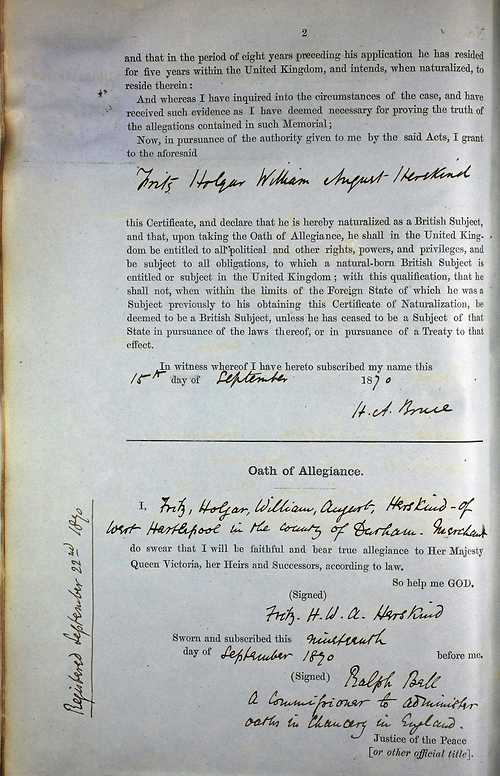 2
and that in the period of eight years preceding his application he has resided
for five years within the United Kingdom, and intends, when naturalized, to
reside therein:
And whereas I have inquired into the circumstances of the case, and have
received such evidence as I have deemed necessary for proving the truth of
the allegations contained in such Memorial;
Now, in pursuance of the authority given to me by the said Acts, I grant
to the aforesaid
Fritz Holgar William August Herskind
this Certificate, and declare that he is hereby naturalized as a British Subject,
and that, upon taking the Oath of Allegiance, he shall in the United King-
dom be entitled to all political and other rights, powers, and privileges, and
be subject to all obligations, to which a natural-born British Subject is
entitled or subject in the United Kingdom; with this qualification, that he
shall not, when within the limits of the Foreign State of which he was a
Subject previously to his obtaining this Certificate of Naturalization, be
deemed to be a British Subject, unless he has ceased to be a Subject of that
State in pursuance of the laws thereof, or in pursuance of a Treaty to that
effect.
In witness whereof I have hereto subscribed my name this
15th day of September 1870
H. A. Bruce
Oath of Allegiance.
I, Fritz, Holgar, William, August, Herskind - of
West Hartlepool in the County of Durham. Merchant
do swear that I will be faithful and bear true allegiance to Her Majesty
Queen Victoria, her Heirs and Successors, according to law.
So help me GOD.
(Signed)
Fritz. H. W. A. Herskind
Sworn and subscribed this nineteenth
day of September 1870 before me.
(Signed) Ralph Bell
A Commissioner to administer
oaths in Chancery in England.
Justice of the Peace
[or other official title].
Registered September 22nd 1870